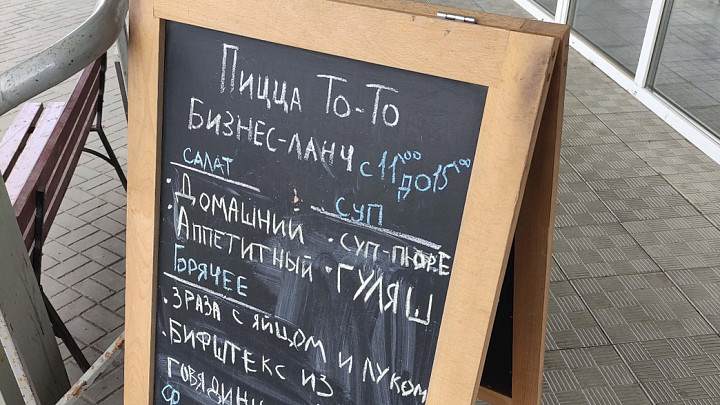 Пицца То-То
Бизнес-ланч с 11:00 до 15:00
Салат
· Домашний
· Аппетитный
Суп
· Суп-пюре
· Гуляш
Горячее
· Зраза с яйцом и луком
· Бифштекс из